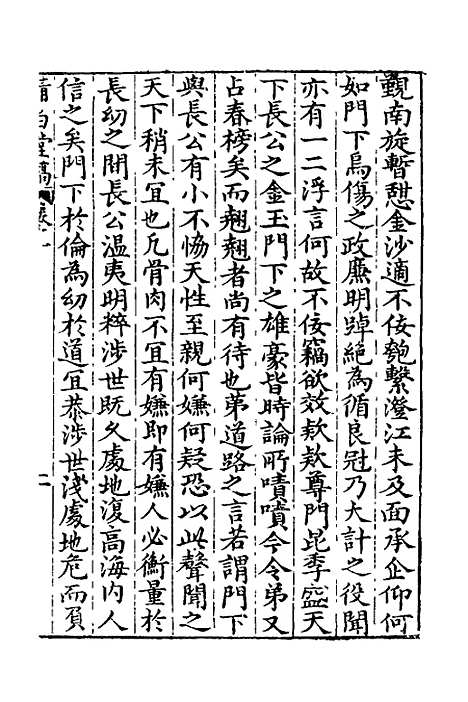 覲南旋暫憇金沙適不佞匏繫澄江未及面承企仰何
如門下烏傷之政廉明踔絶為循良冠乃大計之役聞
亦有一二浮言何故不佞竊欲效欵欵尊門昆季盛天
下長公之金玉門下之雄豪皆時論所嘖嘖今令弟又
占春榜矣而翹翹者尚有待也苐道路之言若謂門下
與長公有小不恊天性至親何嫌何疑恐以此聲聞之
天下稍未冝也凡骨肉不冝有嫌即有嫌人必衡量於
長㓜之間長公温夷明粹涉世既久處地復高海内人
信之矣門下於倫為㓜於道冝恭涉世淺處地危而負